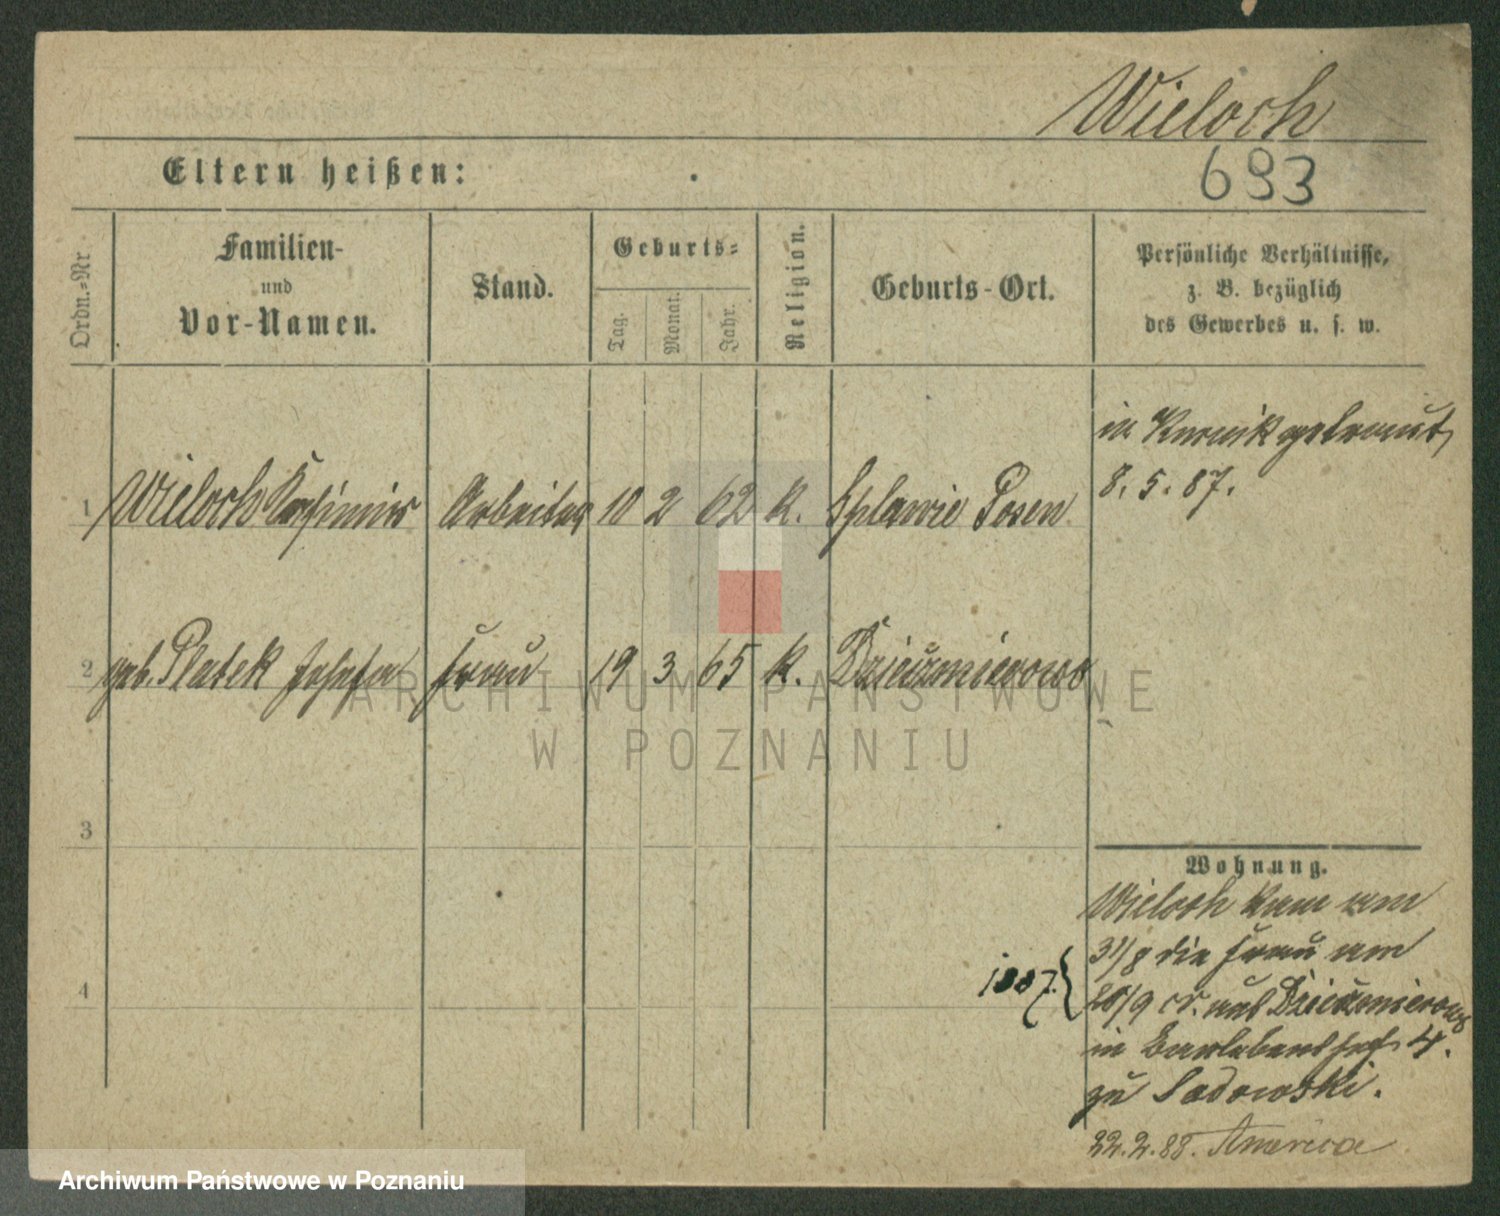 Wieloch
Eltern heißen:
693
Ordn.-Nr
Familien-
und
Vor-Namen.
Stand.
Geburts-
Tag.
Monat.
Jahr.
Religion.
Geburts-Ort.
Persönliche Verhältnisse,
z. B. bezüglich
des Gewerbes u. s. w.
in Kurnik getraut
8. 5. 87.
1 Wieloch Kasimir Arbeiter 10 2 62 K. Splawie Posen
2 geb. Platek Josefa Frau 19 3 65 K. Dzieczmierowo
ARCHIWUM PAŃSTWOWE
W POZNANIU
3
Wohnung.
Wieloch kam am
31/8 die Frau am
1887. 26/9 cr. aus Dzieczmierowo
4
in Bartholdshof 4.
zu Sadowski.
22.2.88. America
Archiwum Państwowe w Poznaniu